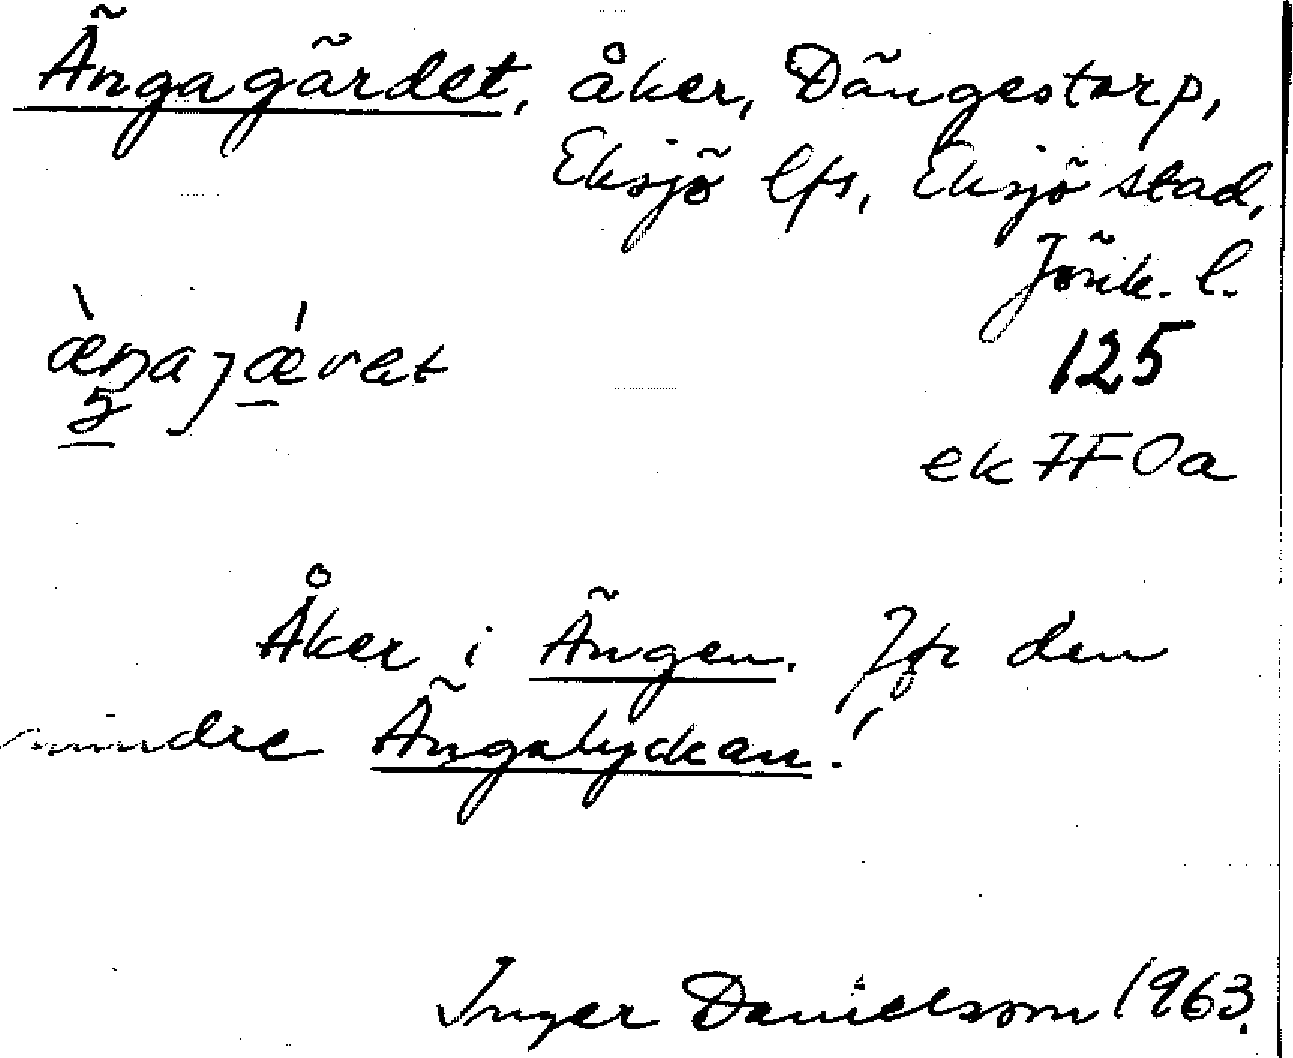 Ängagärdet, åker, Dängestorp,
Eksjö lfs, Eksjö stad,
Jönk. l.
125
ek 7F 0a
Åker i Ängen. Jfr den
mindre Ängalyckan!
Inger Danielsson 1963.